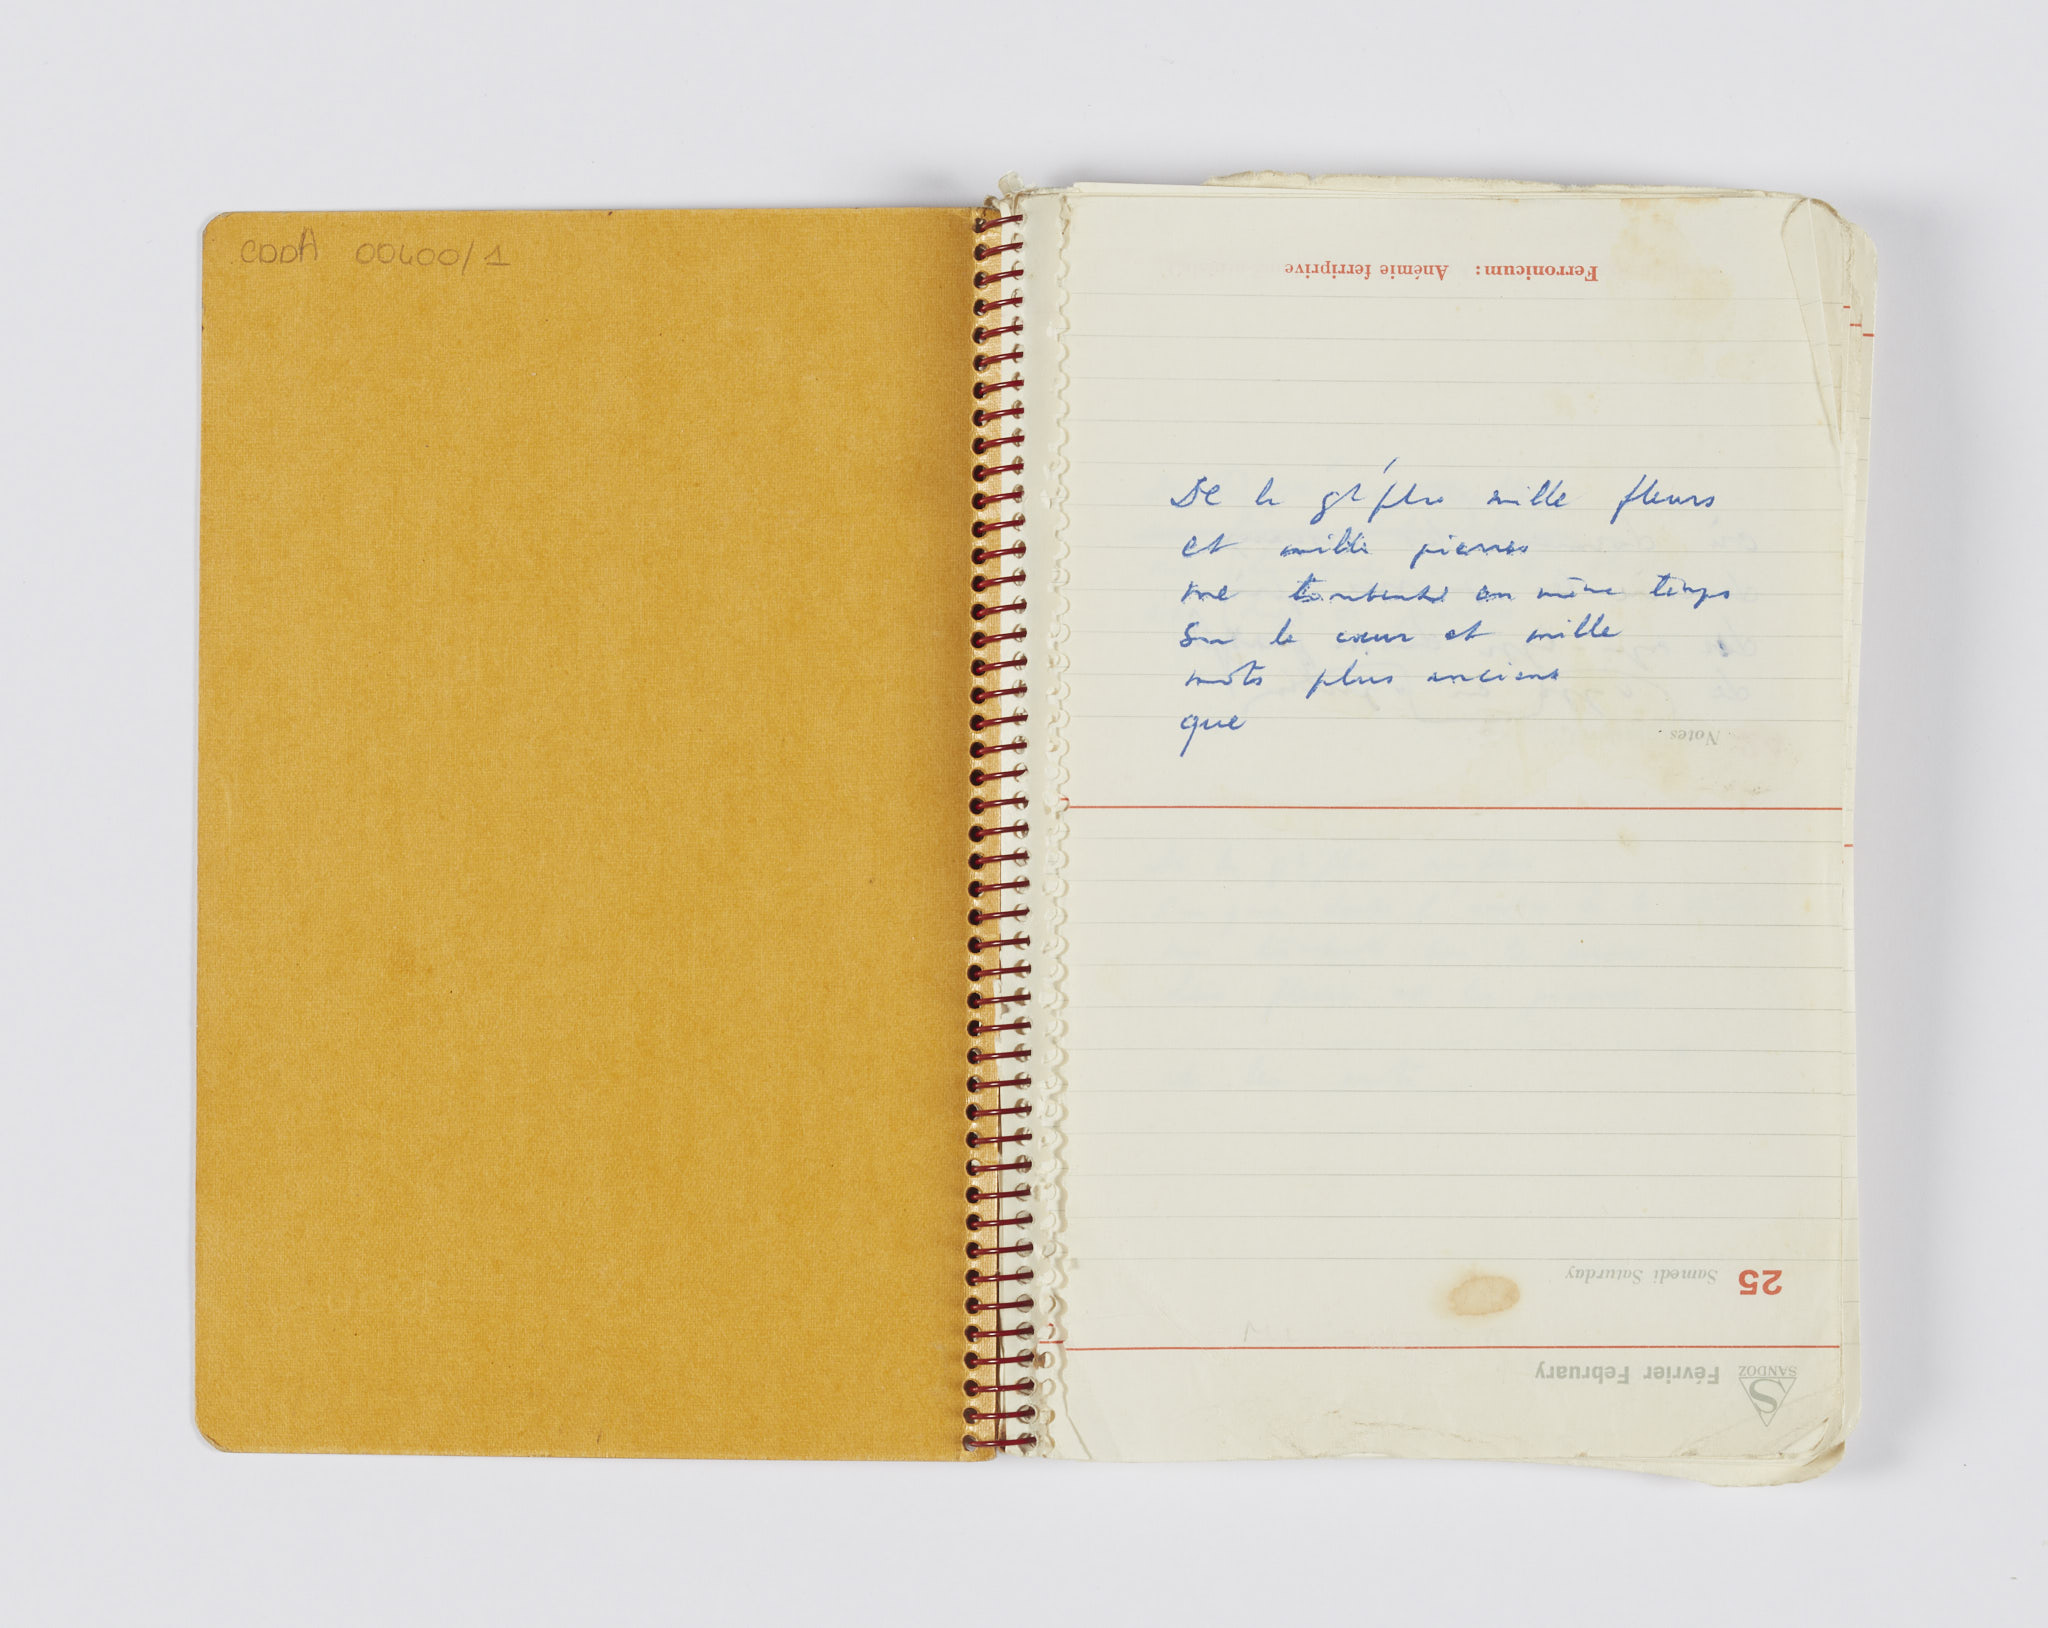 CDDA 00400/1
Ferronicum: Anémie ferriprive
De la mille fleurs
et mille pierres
me tombent en même temps
sur le cœur et mille
mots plus anciens
que
Notes
25 Samedi Saturday
Février February
SANDOZ
S